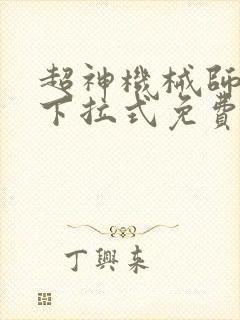 超神機械師
下拉式免費
丁興来